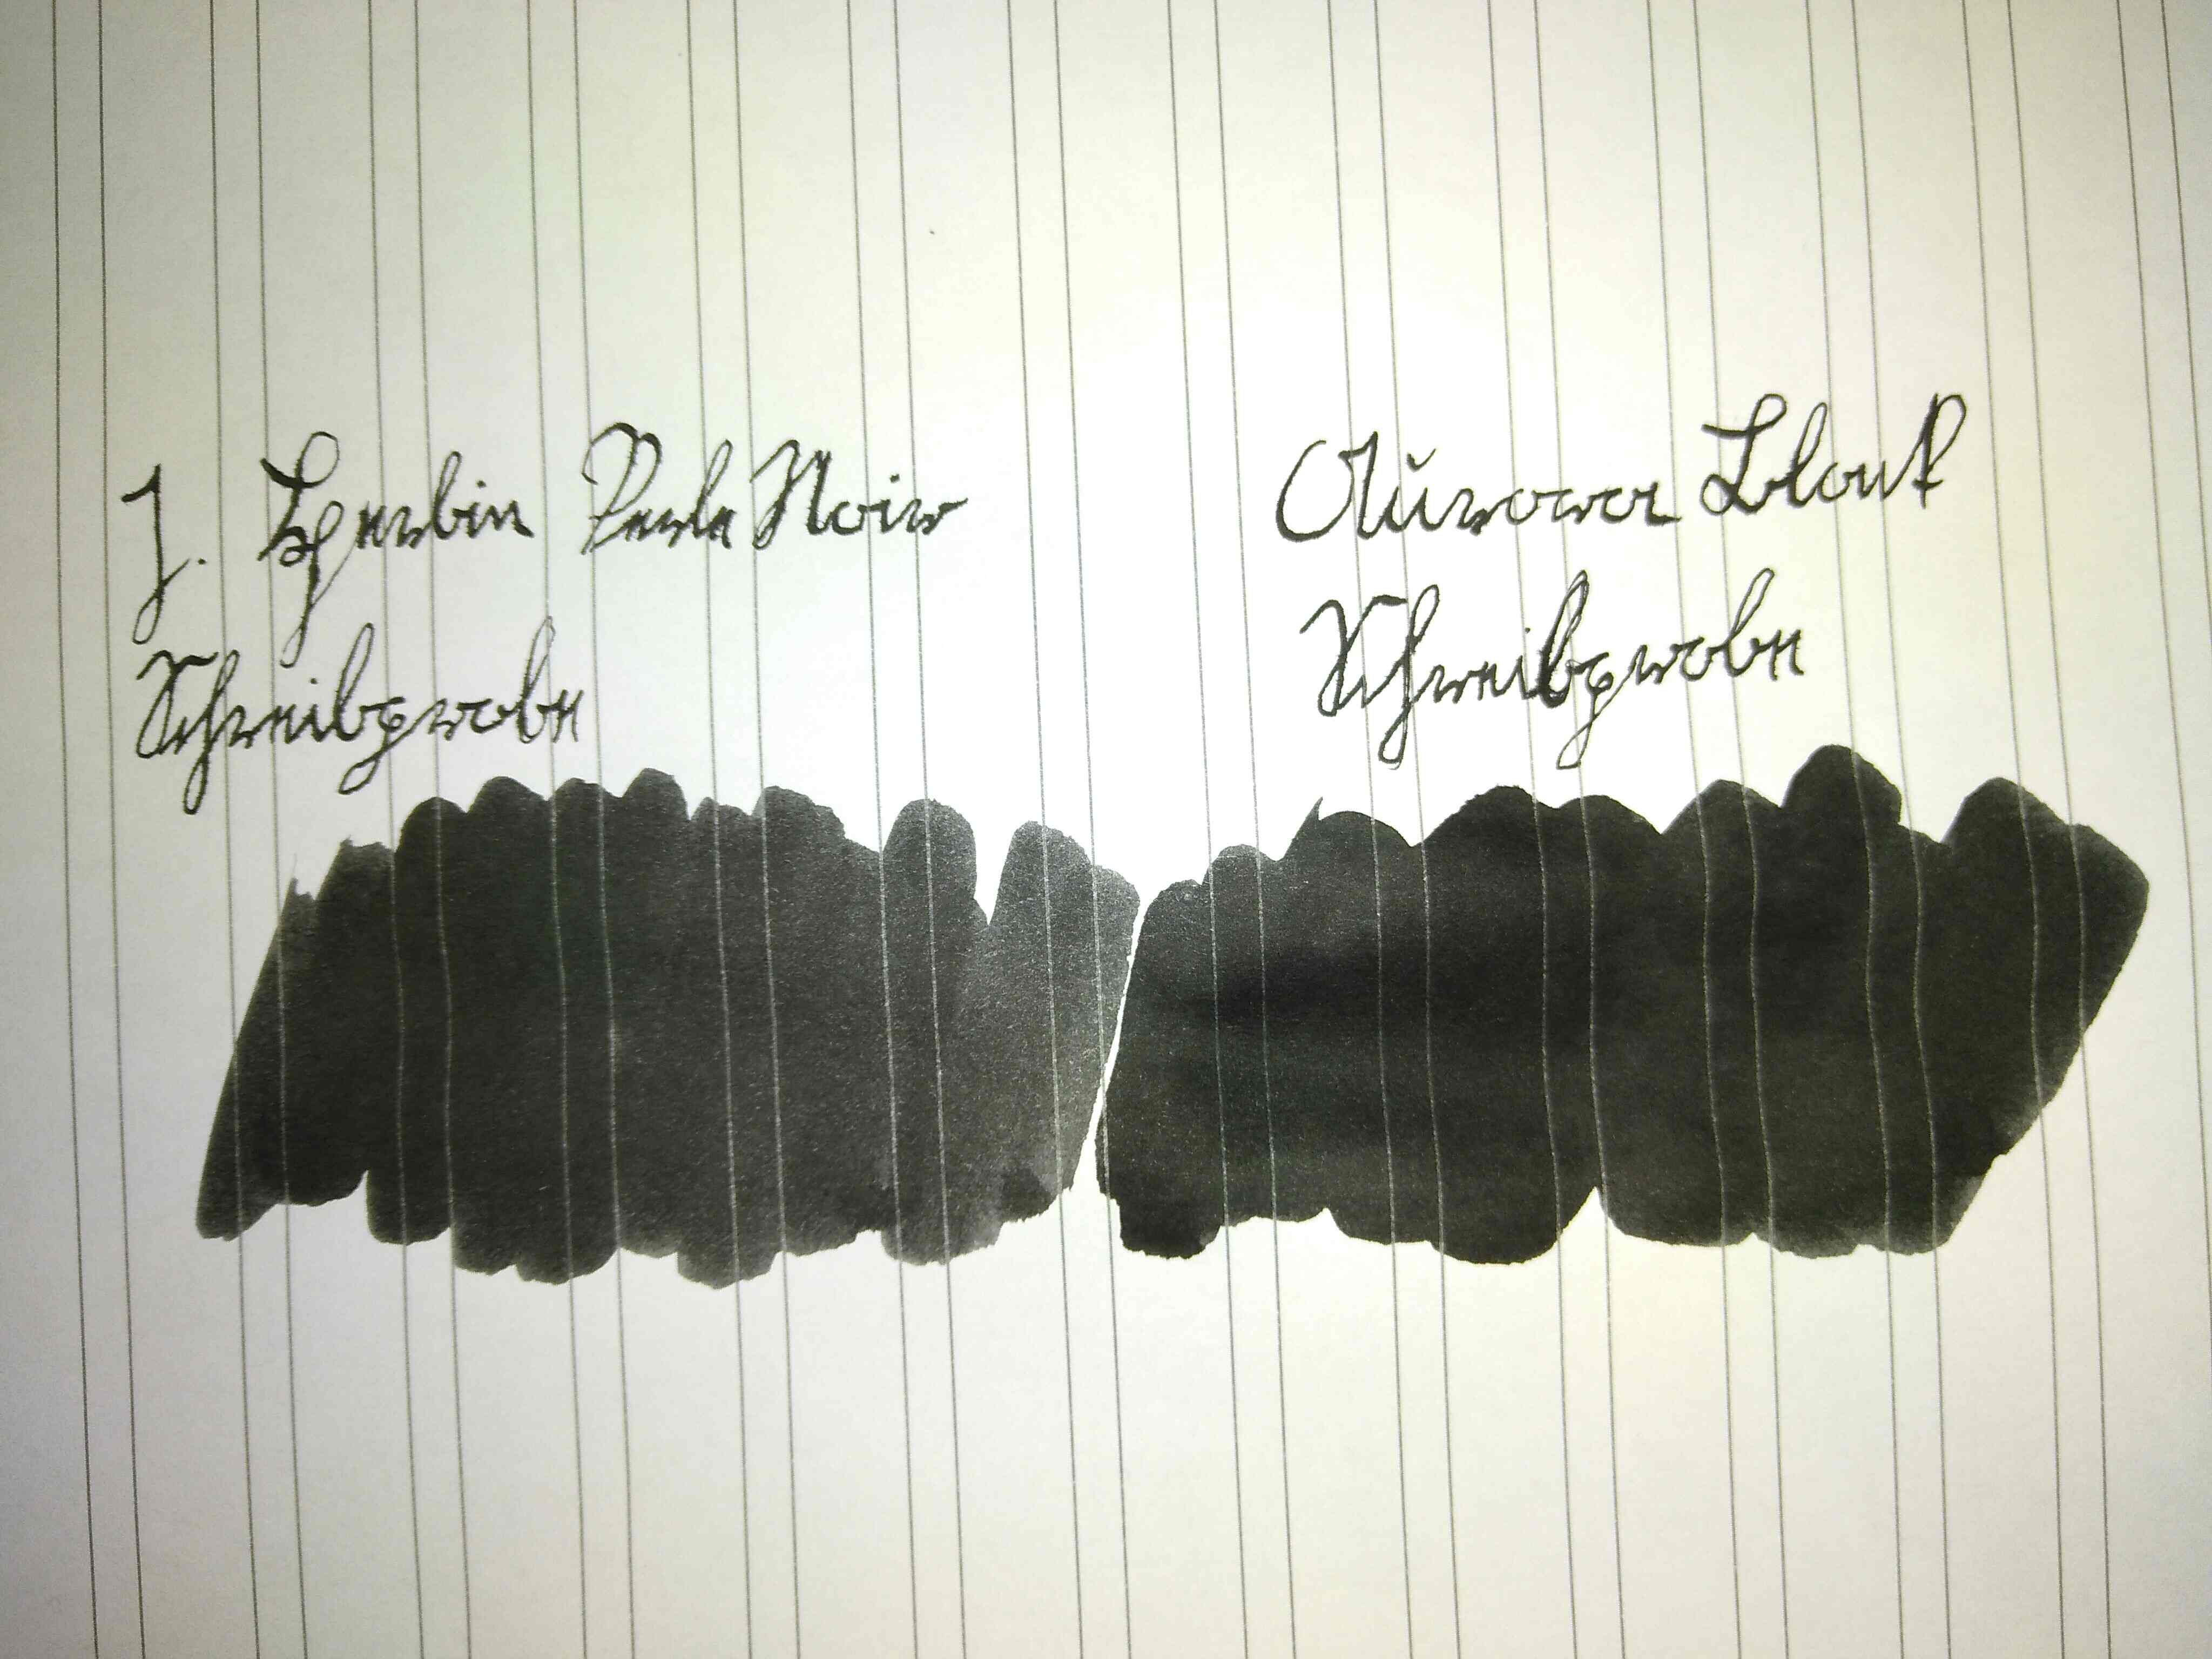 J. Herbin Perle Noir
Schreibprobe
Aurora Black
Schreibprobe